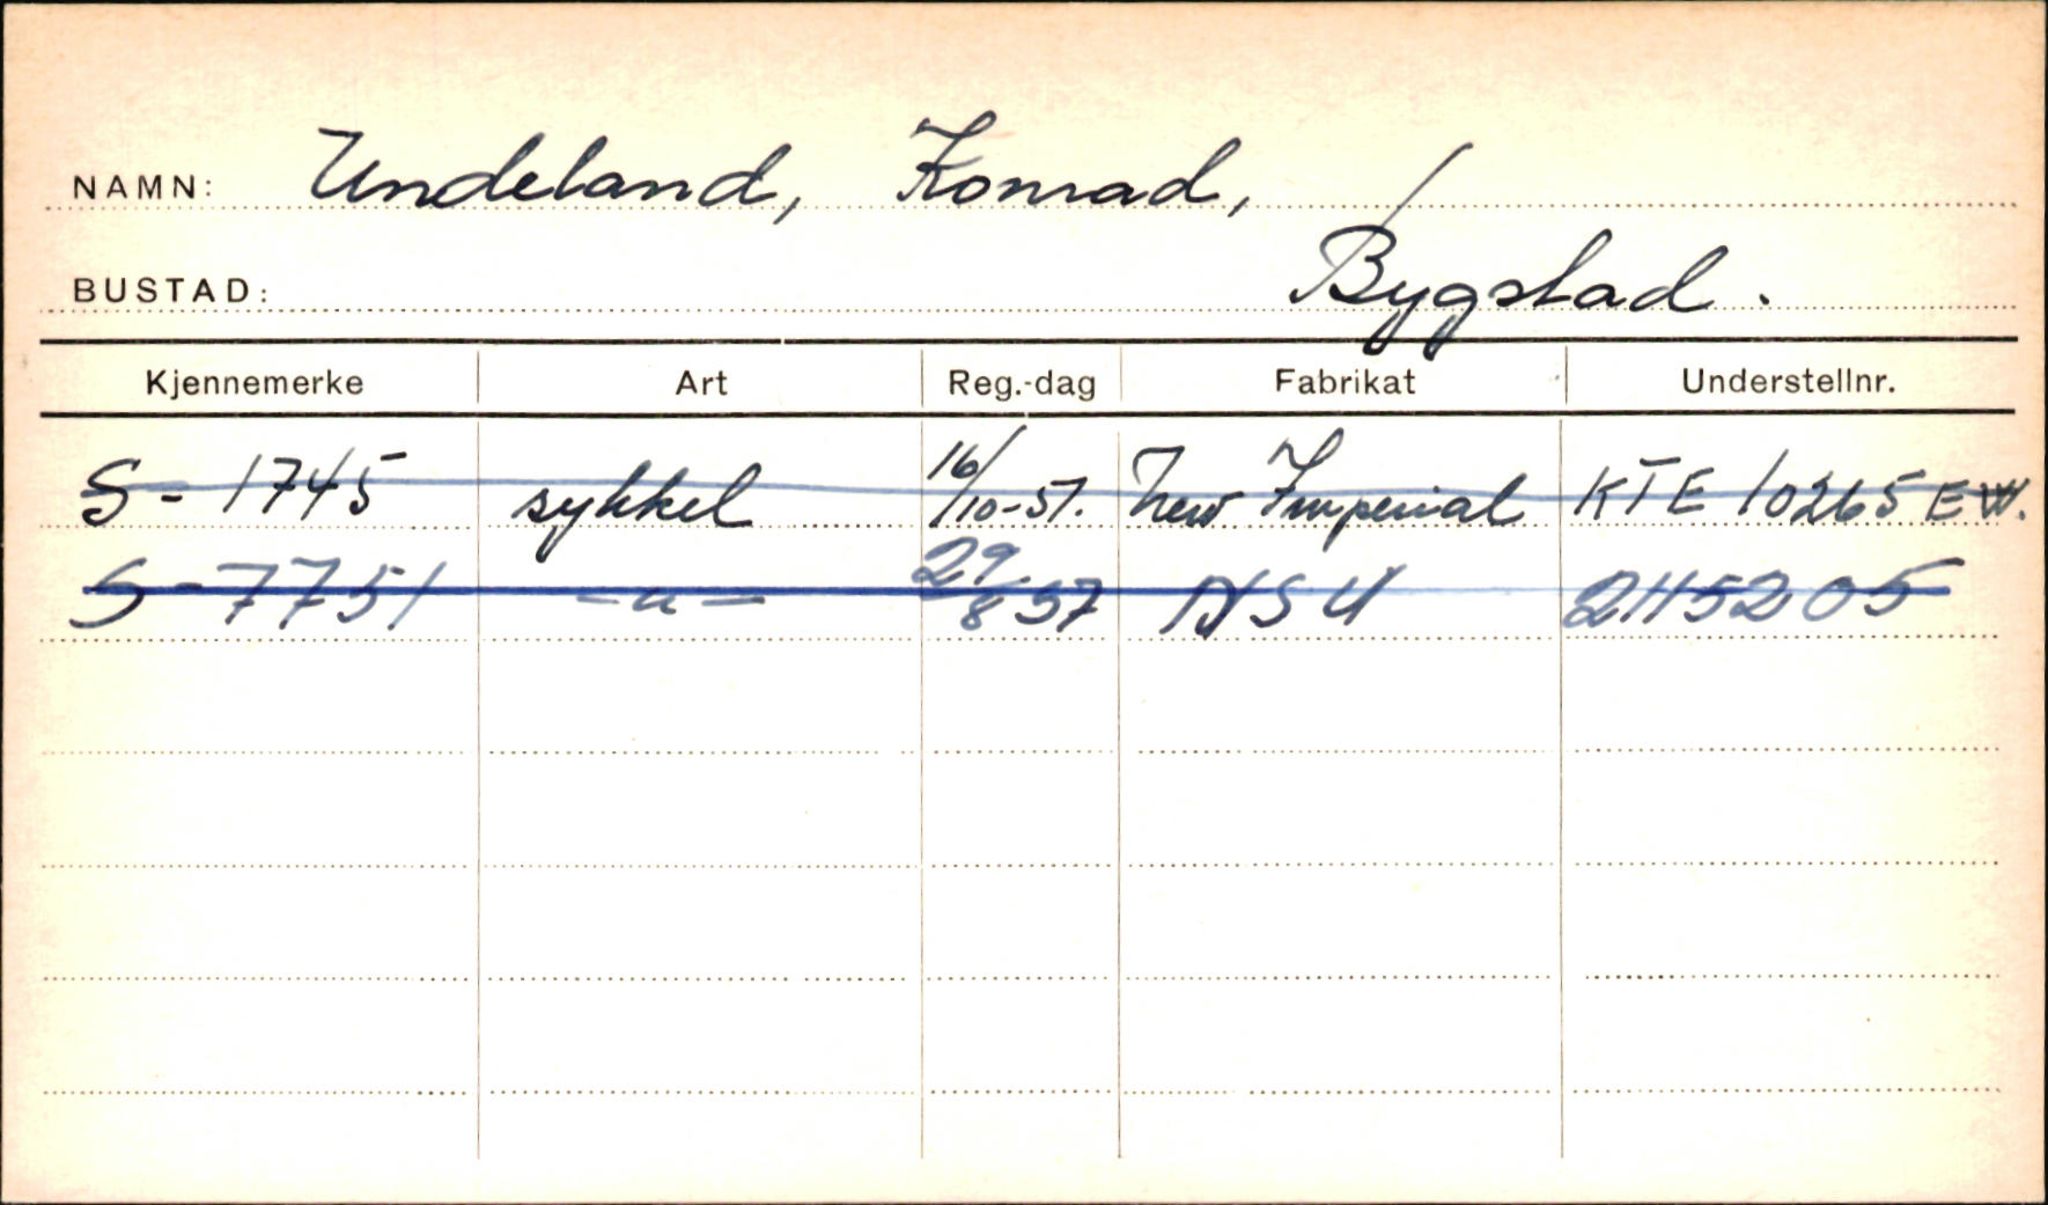 NAMN: Undeland, Konrad,
BUSTAD: Bygstad.
Kjennemerke Art Reg.-dag Fabrikat Understellnr.
S-1745 sykkel 16/10-51. New Imperial KTE 10265 EW.
S-7751 -"- 29/8 57 NSU 2115205